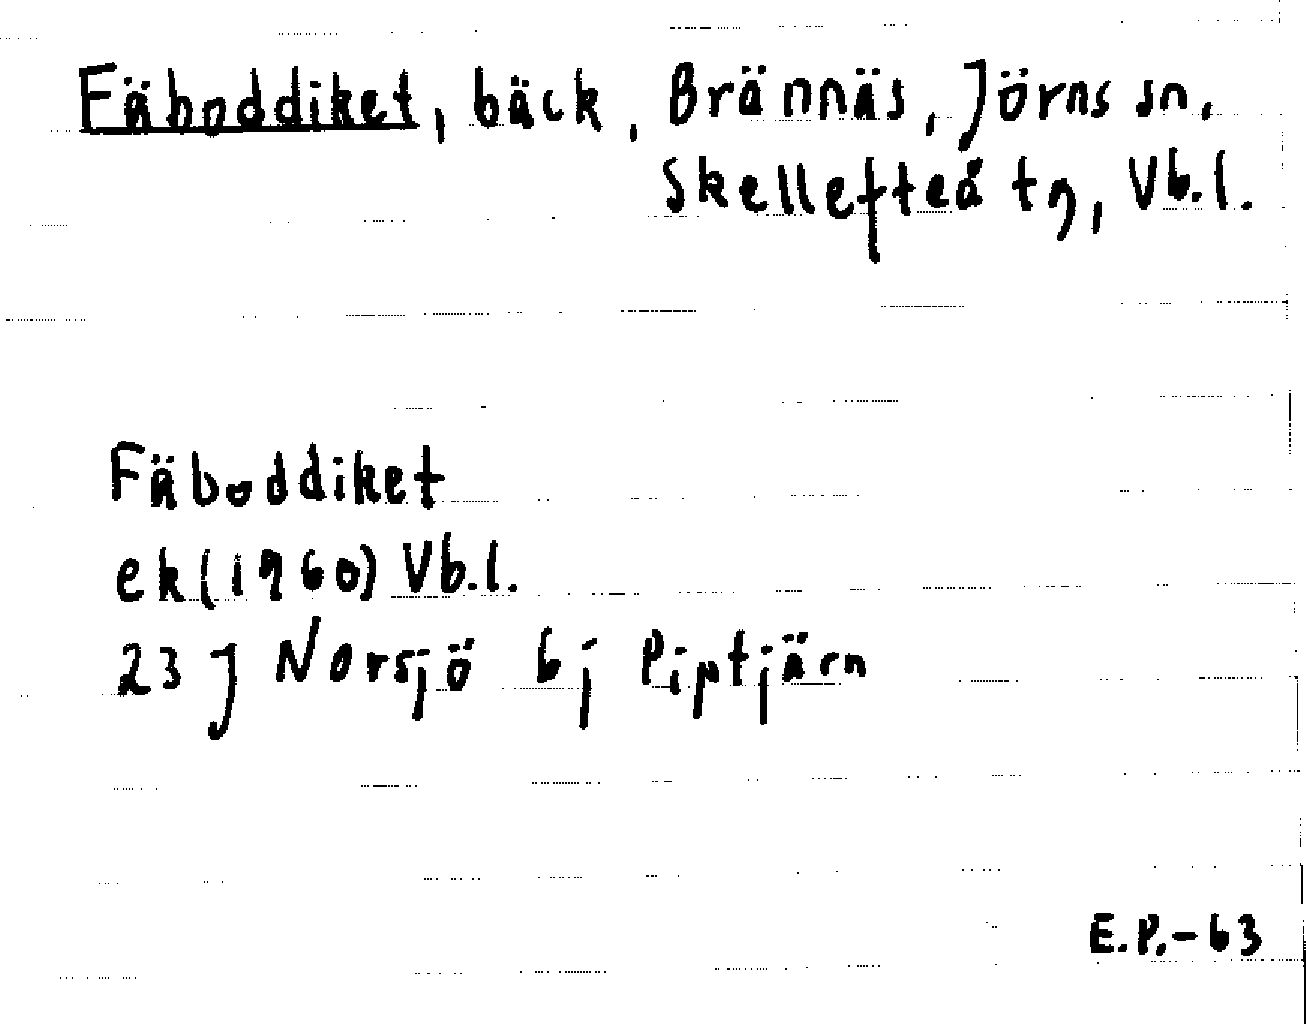 Fäboddiket, bäck, Brännäs, Jörns sn,
Skellefteå tg, Vb.l.
Fäboddiket
ek (1960) Vb.l.
23 J Norsjö 6 j Piptjärn
E.P.-63